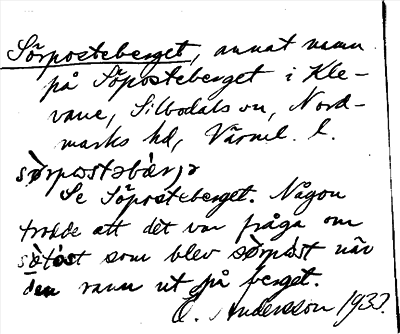 Sörposteberget, annat namn
på Söposteberget i Kle-
vane, Silbodals sn, Nord-
marks hd, Värml. l.
sö̀rpostəbær̀jə
Se Söposteberget. Någon
trodde att det var fråga om
som blev när
den rann ut på berget.
O. Andersson 1933.